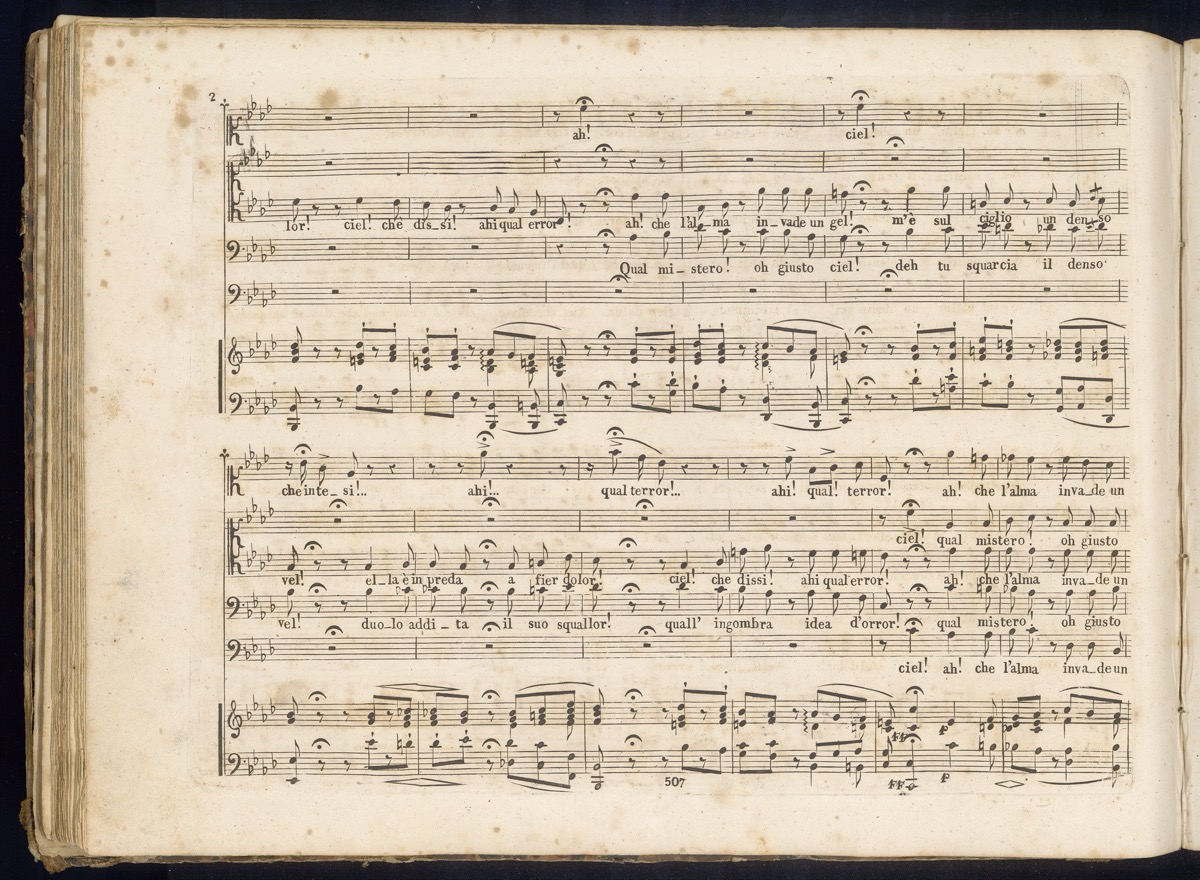 2
ah! ciel!
lor! ciel! che dis_si! ahi qual error! ah! che l'al_ma in_vade un gel! m'è sul ciglio un den_so
Qual mi_stero! oh giusto ciel! deh tu squarcia il denso
che inte_si!.. ahi!... qual terror!... ahi! qual! terror! ah! che l'alma inva_de un
ciel! qual mistero! oh giusto
vel! el_la è in preda a fier dolor! ciel! che dissi! ahi qual error! ah! che l'alma inva_de un
vel! duo_lo addi_ta il suo squallor! quall' ingombra idea d'orror! qual mistero! oh giusto
ciel! ah! che l'alma inva_de un
FF P
FF P
507